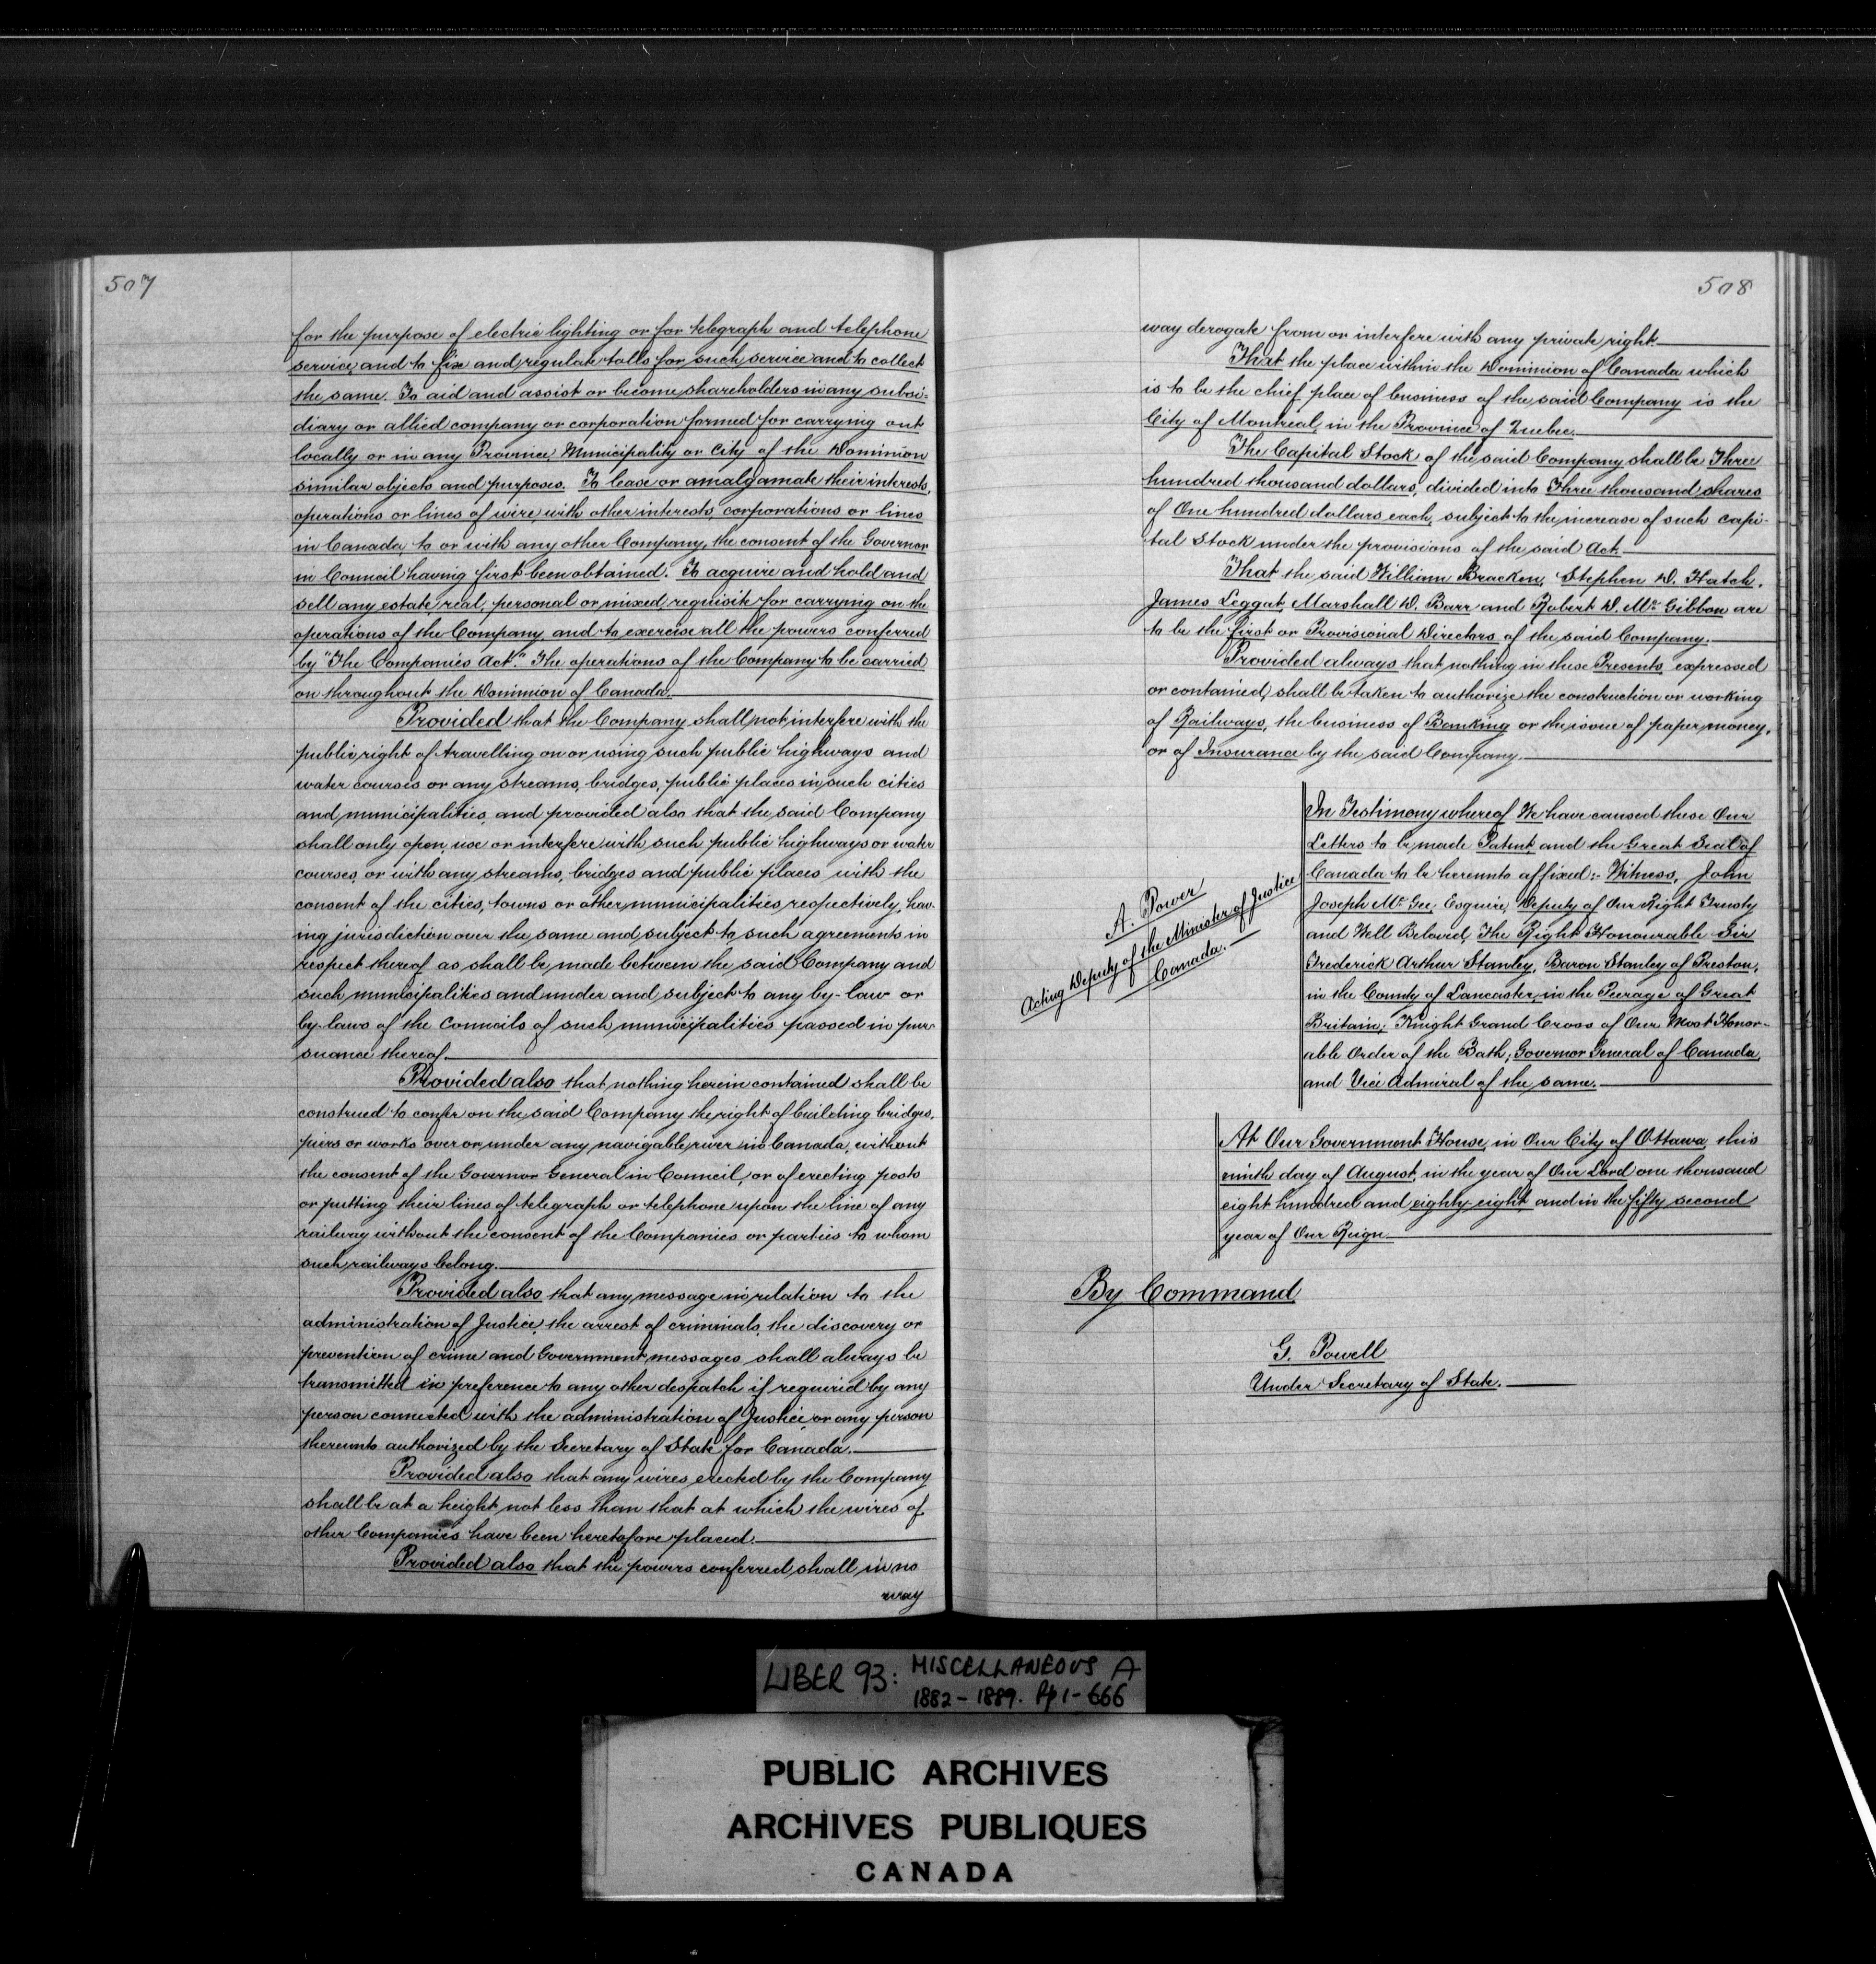 507
for the purpose of electric lighting or for telegraph and telephone
service, and to fix and regulate tolls for such service and to collect
the same. To aid and assist or become shareholders in any subsi-
diary or allied company or corporation formed for carrying out
locally or in any Province, Municipality or City of the Dominion
similar objects and purposes. To lease or amalgamate their interests,
operations or lines of wire, with other interests, corporations or lines
in Canada, to or with any other Company, the consent of the Governor
in Council having first been obtained. To acquire and hold and
sell any estate real, personal or mixed requisite for carrying on the
operations of the Company, and to exercise all the powers conferred
by "The Companies Act." The operations of the Company to be carried
on throughout the Dominion of Canada.
Provided that the Company shall not interfere with the
public right of travelling on or using such public highways and
water courses or any streams, bridges, public places in such cities
and municipalities, and provided also that the said Company
shall only open, use or interfere with such public highways or water
courses, or with any streams, bridges and public places with the
consent of the cities, towns or other municipalities respectively, hav-
ing jurisdiction over the same and subject to such agreements in
respect thereof as shall be made between the said Company and
such municipalities and under and subject to any by-law or
by-laws of the Councils of such municipalities passed in pur-
suance thereof.
Provided also that nothing herein contained shall be
construed to confer on the said Company the right of building bridges,
piers or works over or under any navigable river in Canada, without
the consent of the Governor General in Council, or of erecting posts
or putting their lines of telegraph or telephone upon the line of any
railway without the consent of the Companies or parties to whom
such railways belong.
Provided also that any message in relation to the
administration of Justice, the arrest of criminals, the discovery or
prevention of crime and Government messages, shall always be
transmitted in preference to any other despatch if required by any
person connected with the administration of Justice, or any person
thereunto authorized by the Secretary of State for Canada.
Provided also that any wires erected by the Company
shall be at a height not less than that at which the wires of
other Companies have been heretofore placed.
Provided also that the powers conferred shall in no
way
508
way derogate from or interfere with any private right.
That the place within the Dominion of Canada which
is to be the chief place of business of the said Company is the
City of Montreal, in the Province of Quebec.
The Capital Stock of the said Company shall be Three
hundred thousand dollars, divided into Three thousand shares
of One hundred dollars each, subject to the increase of such capi-
tal Stock under the provisions of the said Act.
That the said William Bracken, Stephen D. Hatch,
James Leggat, Marshall D. Barr and Robert D. Mc Gibbon are
to be the first or Provisional Directors of the said Company.
Provided always that nothing in these Presents expressed
or contained, shall be taken to authorize the construction or working
of Railways, the business of Banking or the issue of paper money,
or of Insurance by the said Company.
In Testimony whereof We have caused these Our
Letters to be made Patent, and the Great Seal of
Canada to be hereunto affixed:- Witness, John
Joseph Mc Gee, Esquire, Deputy of Our Right Trusty
and Well Beloved, The Right Honourable Sir
Frederick Arthur Stanley, Baron Stanley of Preston,
in the County of Lancaster, in the Peerage of Great
Britain; Knight Grand Cross of Our Most Honor-
able Order of the Bath; Governor General of Canada,
and Vice Admiral of the same.
A. Power
Acting Deputy of the Minister of Justice
Canada.
At Our Government House, in Our City of Ottawa, this
ninth day of August, in the year of Our Lord one thousand
eight hundred and eighty eight, and in the fifty second
year of Our Reign.
By Command
G. Powell
Under Secretary of State.
LIBER 93: MISCELLANEOUS A
1882-1889. Pp 1-666
PUBLIC ARCHIVES
ARCHIVES PUBLIQUES
CANADA